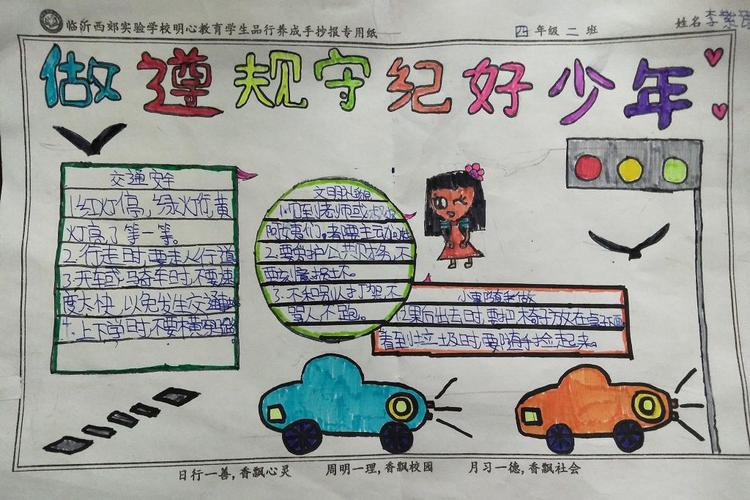 临沂西郊实验学校明心教育学生品行养成手抄报专用纸
四年级 二 班
姓名 李
做遵规守纪好少年
交通安全
1.红灯停,绿灯行,黄
灯亮了等一等。
2.行走时,要走人行道
3.开车或骑车时,不要速
度太快,以免发生交通
4.上下学时,不要横
文明礼貌
1.见到老师或
阿姨们,都要主动
2.要爱护公共财物,不
要
3.不和同学打架,不
骂人,不说。
小事随手做
1.下课后出去时,要把椅子放在桌下面
看到垃圾时,要随手捡起来。
日行一善,香飘心灵 周明一理,香飘校园 月习一德,香飘社会